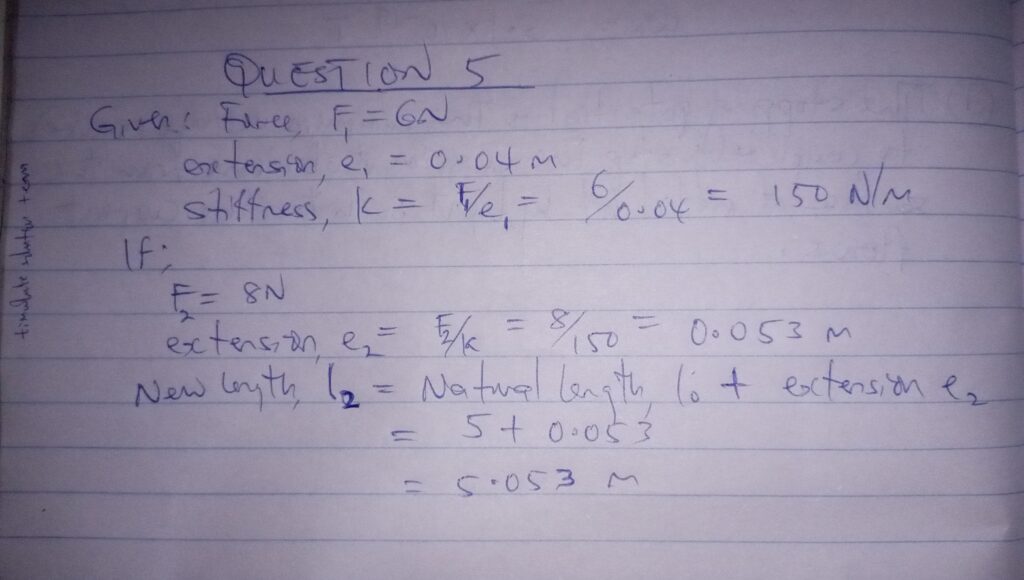 QUESTION 5
Given: Force, F₁ = 6N
extension, e₁ = 0.04 m
stiffness, k = F₁/e₁ = 6/0.04 = 150 N/m
If;
F₂ = 8N
extension, e₂ = F₂/k = 8/150 = 0.053 m
New length, l₂ = Natural length, l₀ + extension e₂
= 5 + 0.053
= 5.053 m
team